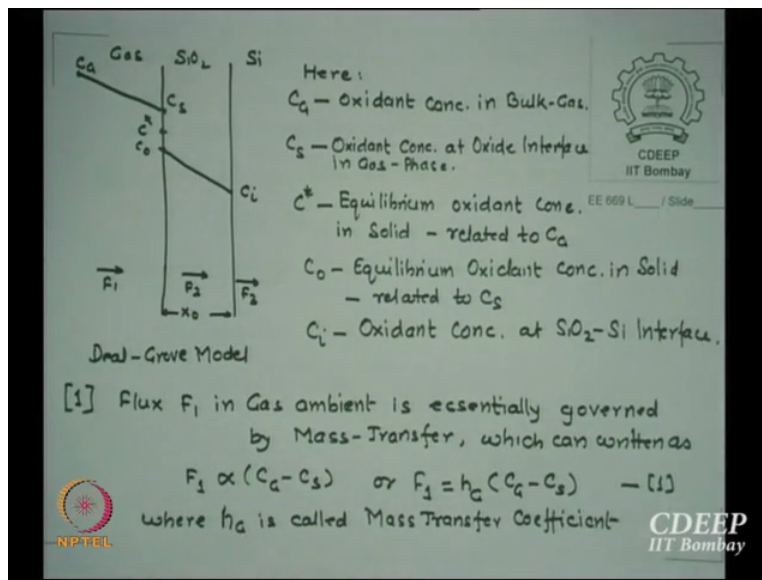 Gas SiO2 Si
CG
Cs
C*
Co
Ci
F1 F2 F3
x0
Deal-Grove Model
Here:
CG — Oxidant Conc. in Bulk-Gas.
Cs — Oxidant Conc. at Oxide Interface
in Gas-Phase.
C* — Equilibrium oxidant conc.
in Solid — related to CG
Co — Equilibrium Oxidant Conc. in Solid
— related to Cs
Ci — Oxidant Conc. at SiO2-Si Interface.
CDEEP
IIT Bombay
EE 669 L____ / Slide____
[1] Flux F1 in Gas ambient is ecsentially governed
by Mass-Transfer, which can written as
F1 ∝ (CG - Cs) or F1 = hG (CG - Cs) — [1]
where hG is called Mass Transfer Coefficient
NPTEL
CDEEP
IIT Bombay